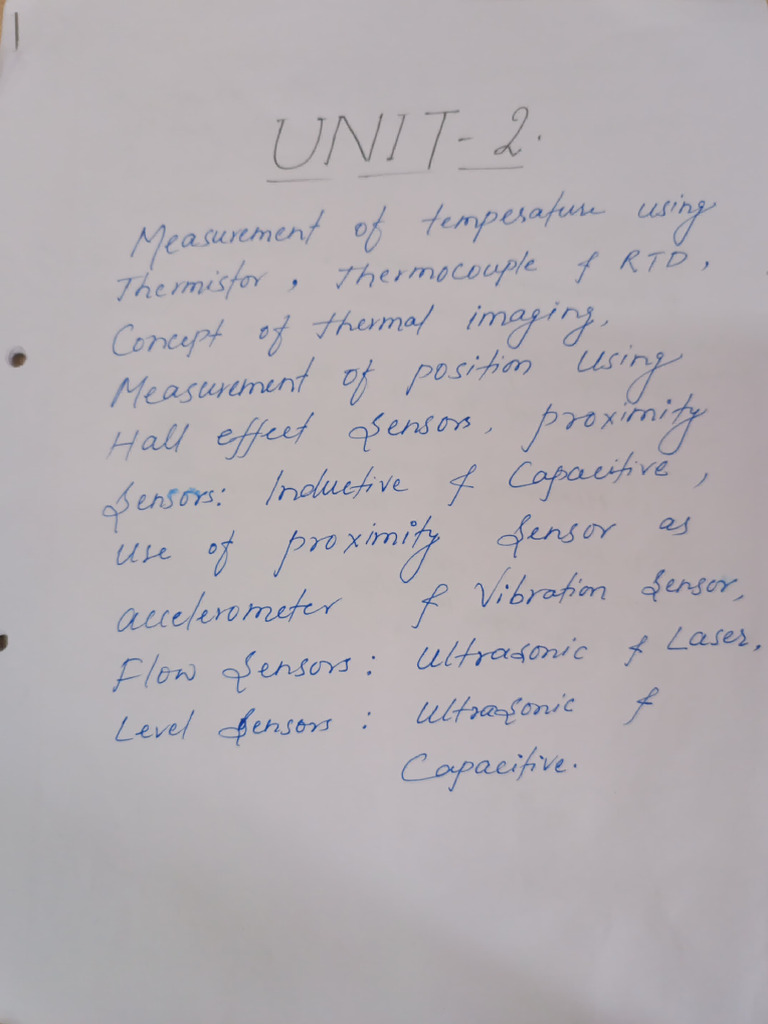 UNIT-2.
Measurement of temperature using
Thermistor, Thermocouple & RTD,
Concept of thermal imaging,
Measurement of position using
Hall effect Sensors, proximity
Sensors: Inductive & Capacitive,
Use of proximity Sensor as
accelerometer & Vibration Sensor,
Flow Sensors: Ultrasonic & Laser,
Level Sensors: Ultrasonic &
Capacitive.